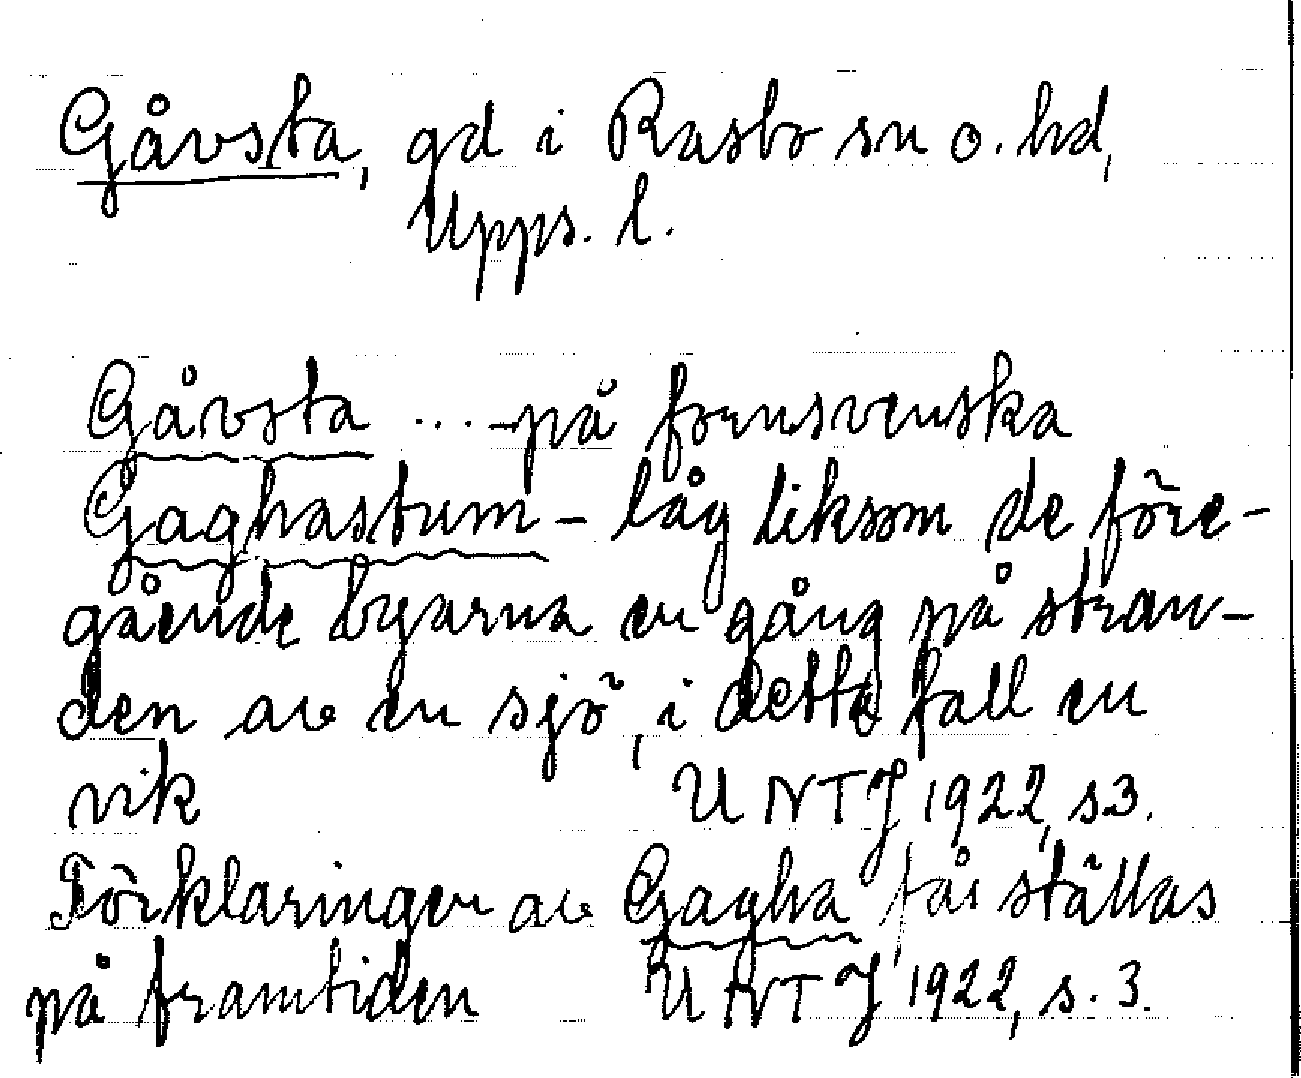 Gåvsta, gd i Rasbo sn o. hd,
Upps. l.
Gåvsta ... - på fornsvenska
Gaghastum - låg liksom de före-
gående byarna en gång på stran-
den av en sjö, i detta fall en
vik UNTJ 1922, s3.
Förklaringen av Gagha får ställas
på framtiden UNTJ 1922, s. 3.